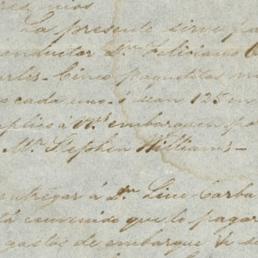 La presente sirve pa
conductor Dn. Feliciano
Cinco paquetitos
cada uno ó sean 125 en
suplico á Vds. embarquen po
Mr. Stephen Williams—
entregar á Dn. Lino Carba
tá convenido que le pagar
gastos de embarque